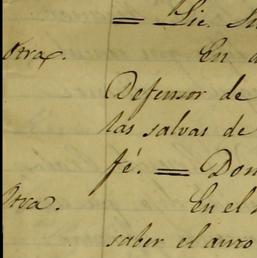 = Lic. Ju
Otra. En a
Defensor de
las salvas de
fé. = Don
Otra. En el
saber el auto